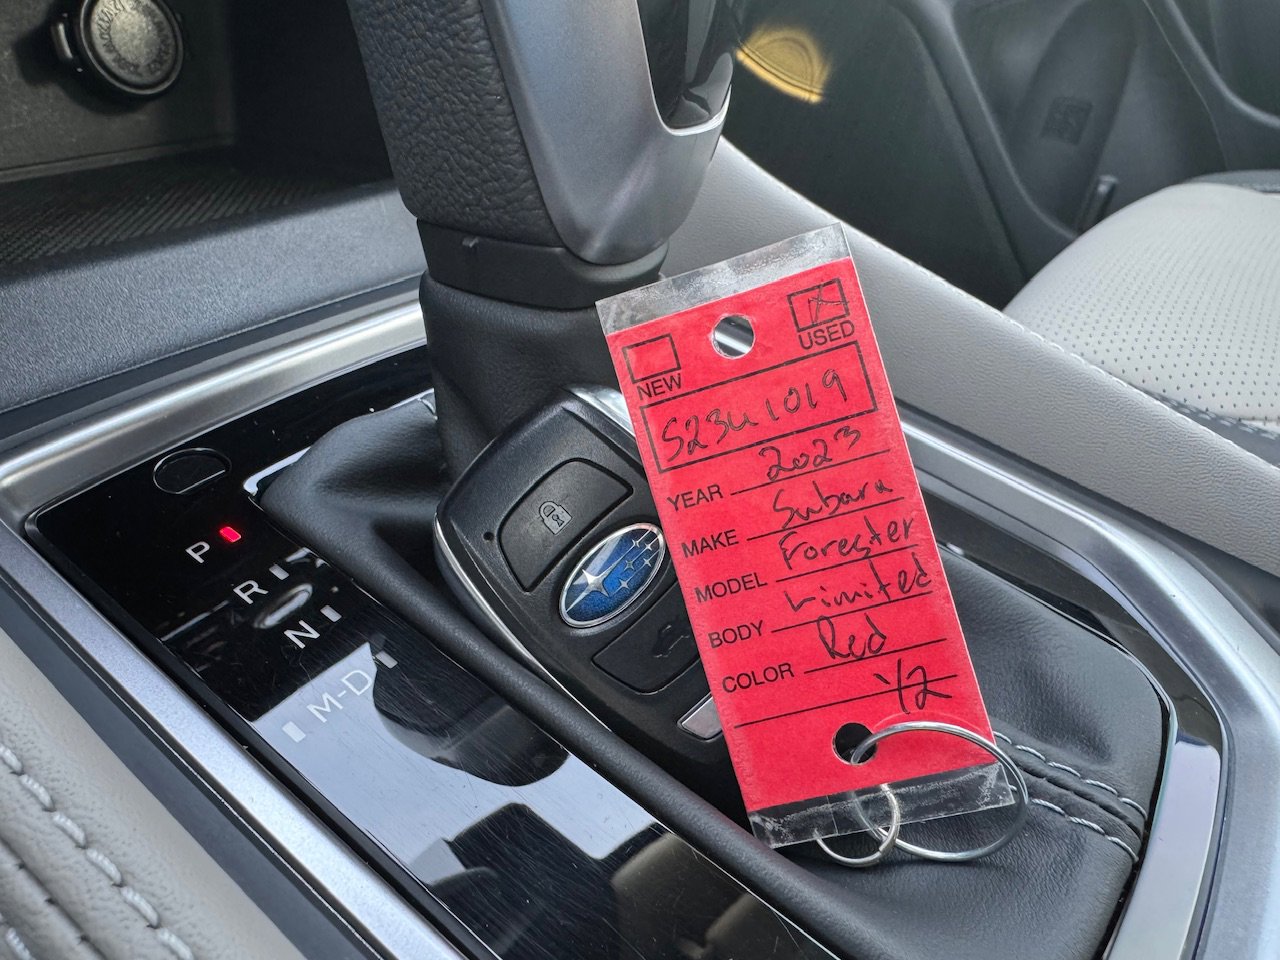 P
R
N
M-D
NEW
USED
S23U1019
YEAR 2023
MAKE Subaru
MODEL Forester
BODY Limited
COLOR Red
1/2